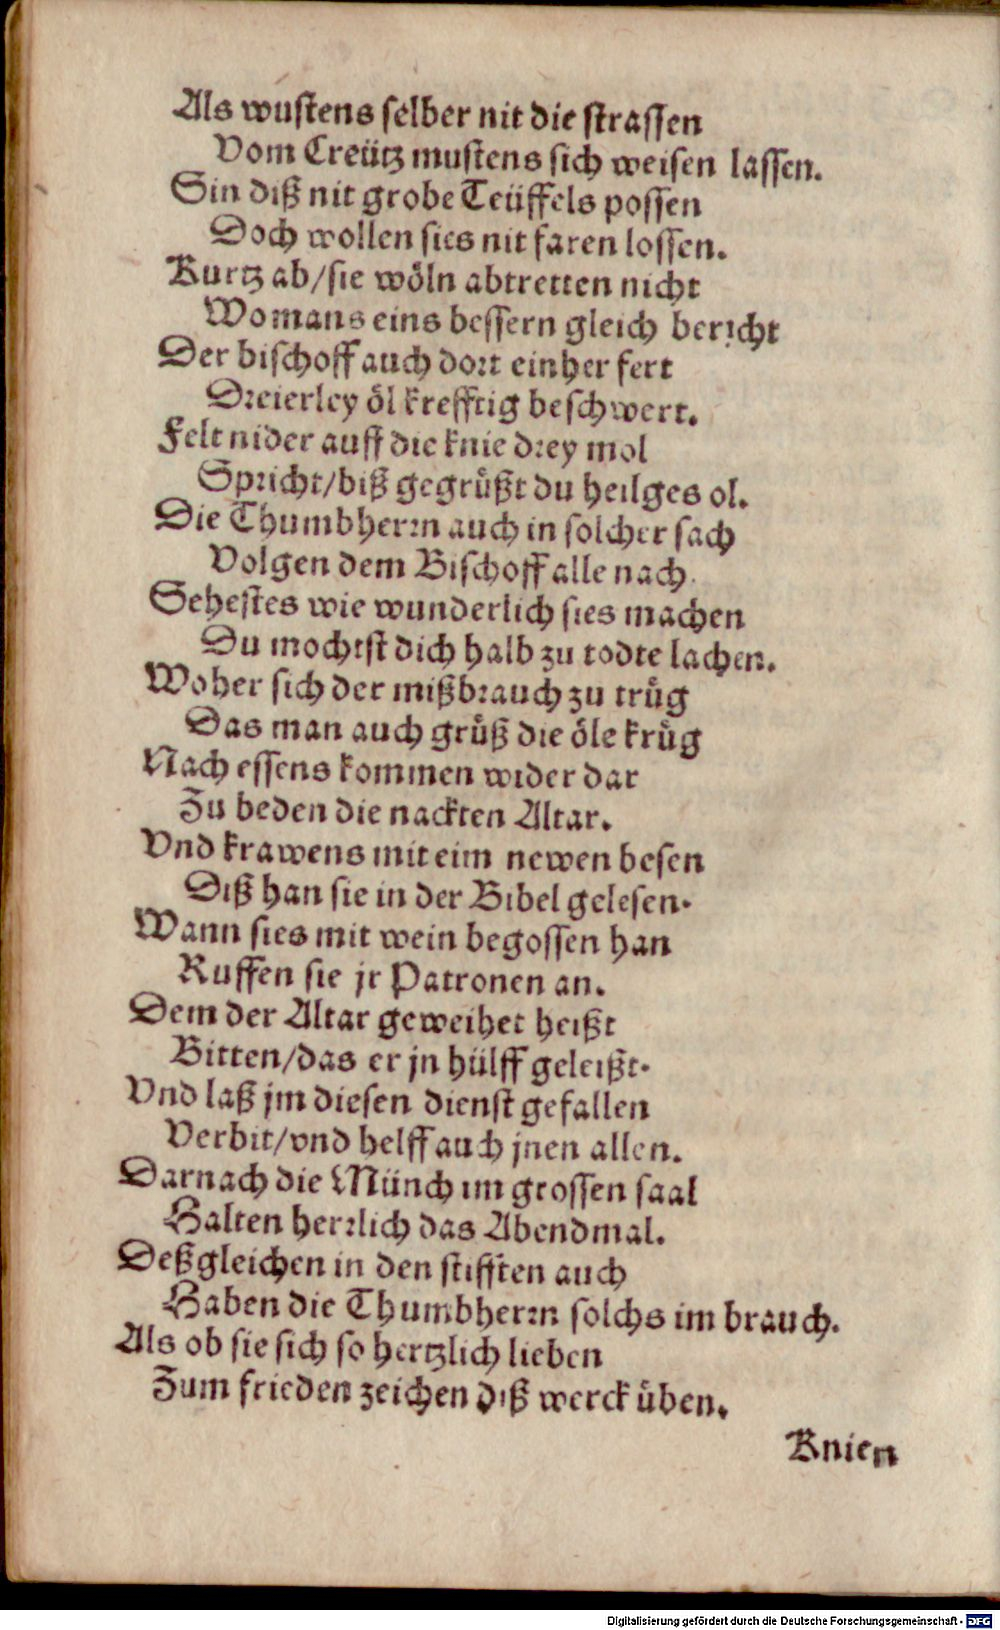 Als wustens selber nit die strassen
Vom Creütz mustens sich weisen lassen.
Sin diß nit grobe Teüffels possen
Doch wollen sies nit faren lossen.
Kurtz ab/sie wöln abtretten nicht
Wo mans eins bessern gleich bericht
Der bischoff auch dort einher fert
Dreierley öl krefftig beschwert.
Felt nider auff die knie drey mol
Spricht/biß gegrüßt du heilges ol.
Die Thumbherrn auch in solcher sach
Volgen dem Bischoff alle nach.
Sehestes wie wunderlich sies machen
Du mochtst dich halb zu todte lachen.
Woher sich der mißbrauch zu trüg
Das man auch grüß die öle krüg
Nach essens kommen wider dar
Zu beden die nackten Altar.
Vnd krawens mit eim newen besen
Diß han sie in der Bibel gelesen.
Wann sies mit wein begossen han
Ruffen sie jr Patronen an.
Dem der Altar geweihet heißt
Bitten/das er jn hülff geleißt.
Vnd laß jm diesen dienst gefallen
Verbit/vnd helff auch jnen allen.
Darnach die Münch im grossen saal
Halten herrlich das Abendmal.
Deßgleichen in den stifften auch
Haben die Thumbherrn solchs im brauch.
Als ob sie sich so hertzlich lieben
Zum frieden zeichen diß werck üben.
Knien
Digitalisierung gefördert durch die Deutsche Forschungsgemeinschaft - DFG